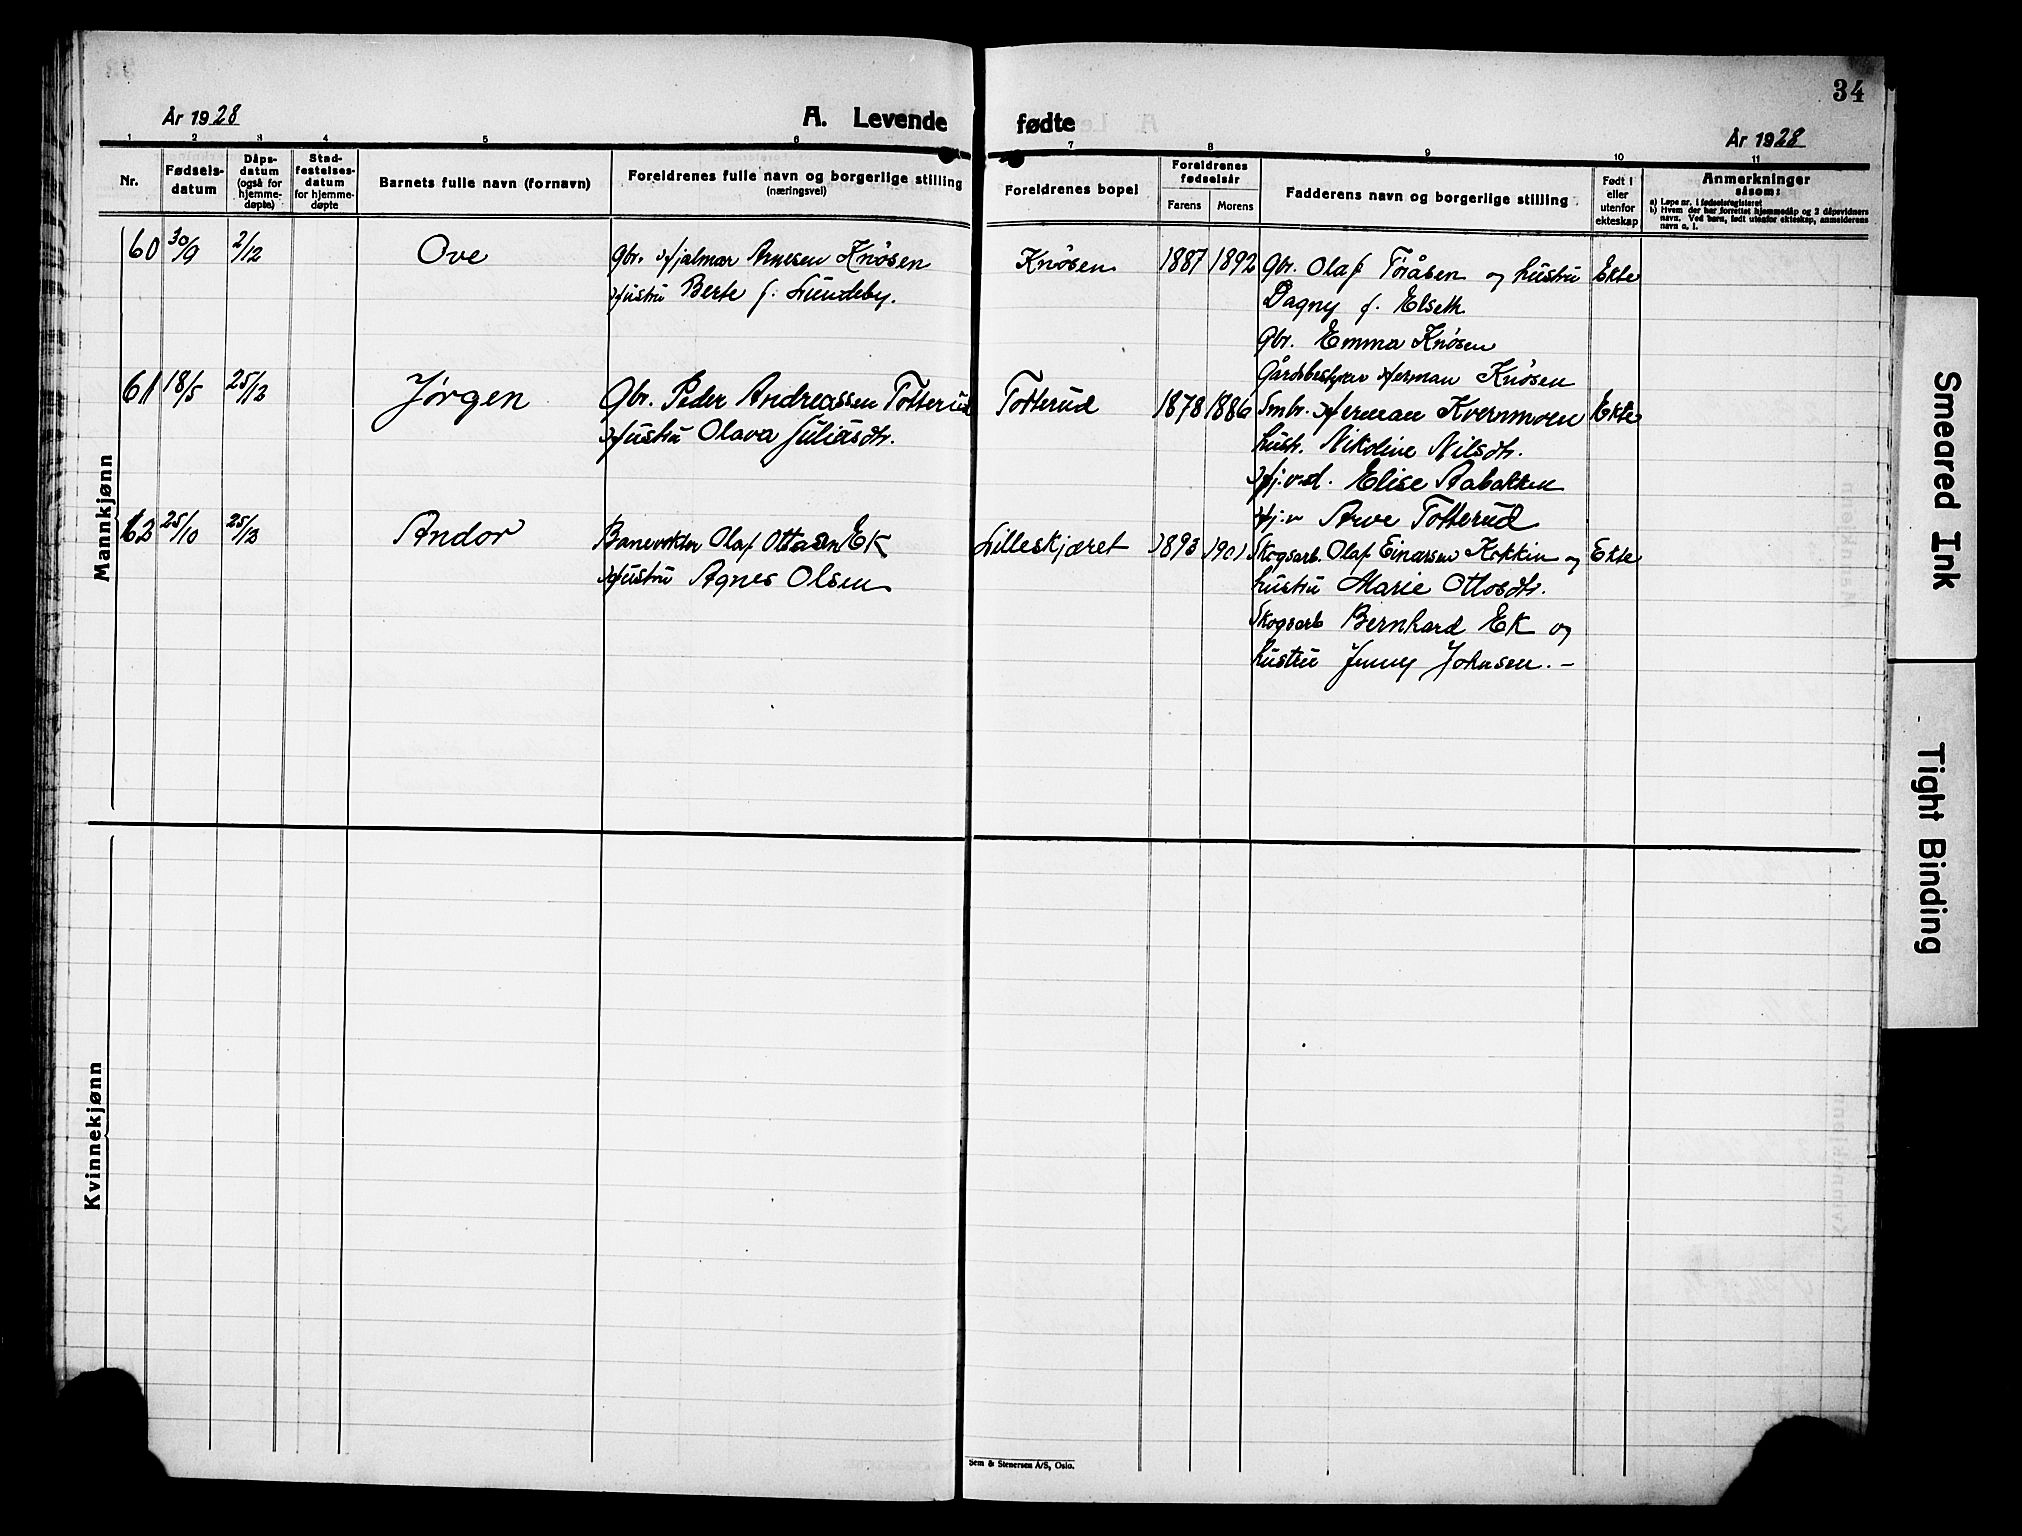 34
År 1928
A. Levende fødte
År 1928
1 2 3 4 5 6 7 8 9 10 11
Nr.
Fødselsdatum
Dåpsdatum (også for hjemmedøpte)
Stadfestelsesdatum for hjemmedøpte
Barnets fulle navn (fornavn)
Foreldrenes fulle navn og borgerlige stilling
(næringsvei)
Foreldrenes bopel
Foreldrenes fødselsår
Farens Morens
Fadderens navn og borgerlige stilling
Født i eller utenfor ekteskap
Anmerkninger
såsom:
a) Løpe nr. i fødselsregisteret
b) Hvem der har forrettet hjemmedåp og 2 dåpsvidners
navn. Ved barn, født utenfor ekteskap, anmelderens
navn o. l.
Mannkjønn
60 30/9 2/12 Ove Gbr. Hjalmar Arnesen Knøsen Knøsen 1887 1892 Gbr. Olaf Toråsen og hustru Ekte
Hustru Berte f. Lundeby. Dagny f. Elseth
Gbr. Emma Knøsen
Gårdsbestyrer Herman Knøsen
61 18/5 25/12 Jørgen Gbr. Peder Andreassen Totterud Totterud 1878 1886 Smbr. Herman Kvernmoen Ekte
Hustru Olava Juliusdtr. hustr. Nikoline Nilsdtr.
Hj.v.d. Elise Aabakken
Hj.v Arve Totterud
62 25/10 25/12 Andor Banevokter Olaf Ottosen Ek Lilleskjæret 1893 1901 Skogsarb. Olaf Einarsen Kokkin og Ekte
Hustru Agnes Olsen hustru Marie Ottosdtr.
Skogsarb Bernhard Ek og
hustru Jenny Johnsen. –
Kvinnekjønn
Sem & Stenersen A/S, Oslo.
Smeared Ink
Tight Binding